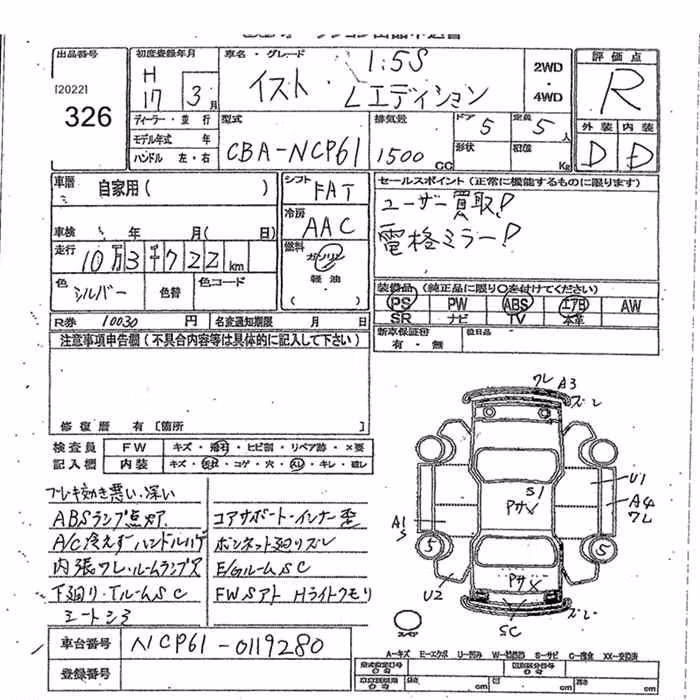 出品番号
[2022]
326
初度登録年月
H
17 3月
ディーラー・並行
モデル年式 年
ハンドル 左・右
車名・グレード
1:5S
イスト Lエディション
2WD
・
4WD
評価点
R
外装 内装
D D
型式
CBA-NCP61
排気量
1500 CC
ドア 5
定員 5人
形状
積量
Kg
車歴
自家用( )
車検 年 月( 日)
走行
10万3千722km
色
シルバー
色替
色コード
シフト
FAT
冷房
AAC
燃料
ガソリン
軽油
( )
セールスポイント(正常に機能するものに限ります)
ユーザー買取!
電格ミラー!
装備品(純正品に限り○を付けてください)
PS PW ABS エアB AW
SR ナビ TV 本革
新車保証書
有・無
後日品
R券 10030 円
名変通知期限 月 日
注意事項申告欄(不具合内容等は具体的に記入して下さい)
修復歴 有 [箇所
検査員
記入欄
FW キズ・飛石・ヒビ割・リペア跡・×要
内装 キズ・・コゲ・穴・・キレ・破レ
ブレーキ効き悪い、深い
ABSランプ点灯
A/C冷えず ハンドルハゲ
内張ワレ・ルームランプ欠
下廻り・TルームSC
シートシミ
コアサポート・インナー歪
ボンネット廻りズレ
E/GルームSC
FWSアト Hライトクモリ
ワレ A3
ズレ
U1
A4
ワレ
S1
Pサメ
A1
S
5
5
Pサメ
U2
SC
ズレ
スペア
車台番号
NCP61-0119280
登録番号
A-キズ E-エクボ U-凹み W-補修跡 S-サビ C-腐食 XX-交換済
型式指定番号
類別区分番号
長さ cm
巾 cm
高さ cm